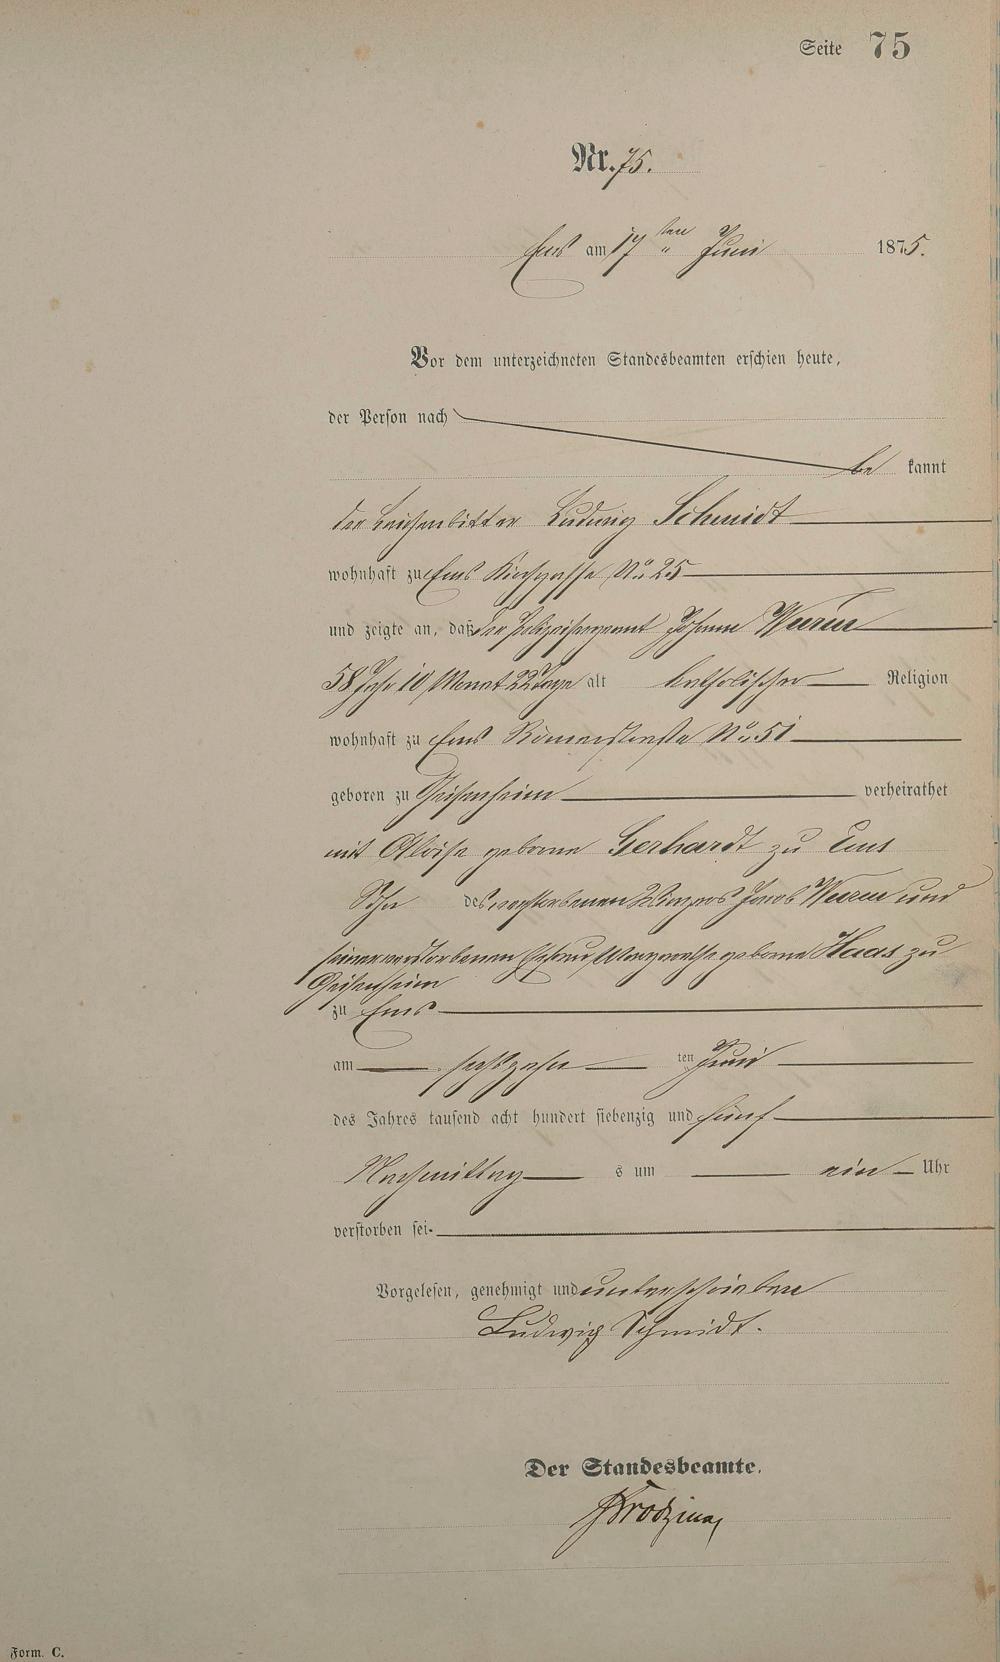 Seite 75
Nr. 75.
Ems am 17 ten " Juni 1875.
Vor dem unterzeichneten Standesbeamten erschien heute,
der Person nach
be kannt
der Leichenbitter Ludwig Schmidt
wohnhaft zu Ems Kirchgasse No 25
und zeigte an, daß der Polizeisergeant Johann Wurm
58 Jahr 10 Monat 22 Tage alt katholischer Religion
wohnhaft zu Ems Römerstraße No 51
geboren zu Geisenheim verheirathet
mit Aloise geborne Gerhardt zu Ems
Sohn des verstorbenen Winzers Jacob Wurm und
seiner verstorbenen Ehefrau Margarethe geborne Haas zu
Geisenheim
zu Ems
am sechszehn ten Juni
des Jahres tausend acht hundert siebenzig und fünf
Nachmittag s um ein Uhr
verstorben sei.
Vorgelesen, genehmigt und unterschrieben
Ludwig Schmidt.
Der Standesbeamte.
Form. C.